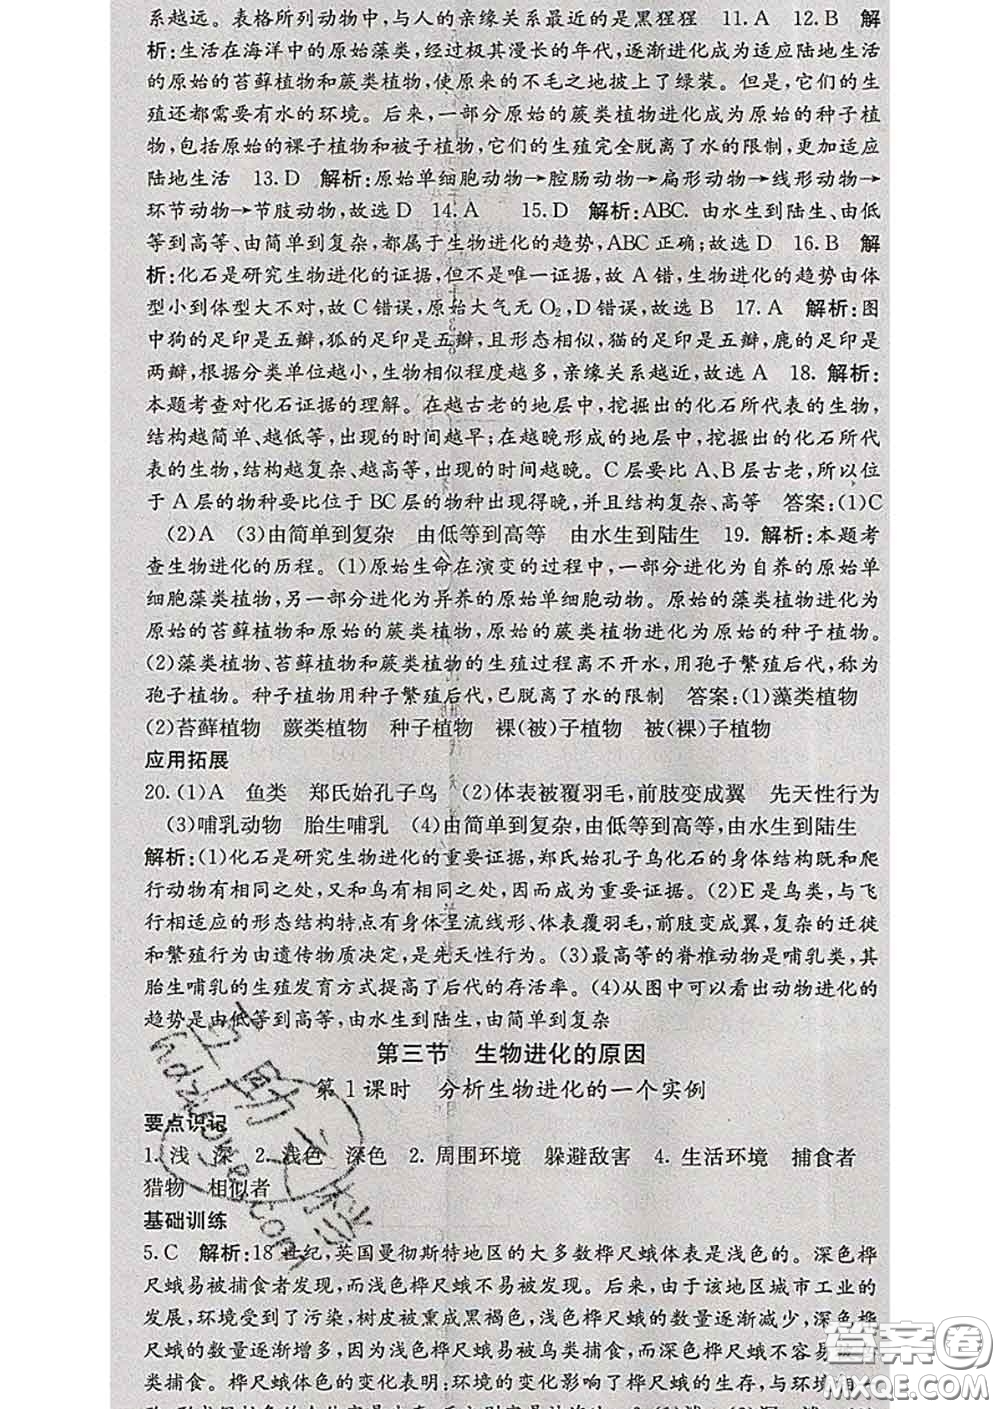 系越远。表格所列动物中,与人的亲缘关系最近的是黑猩猩　11. A　12. B　解
析:生活在海洋中的原始藻类,经过极其漫长的年代,逐渐进化成为适应陆地生活
的原始的苔藓植物和蕨类植物,使原来的不毛之地披上了绿装。但是,它们的生
殖还都需要有水的环境。后来,一部分原始的蕨类植物进化成为原始的种子植
物,包括原始的裸子植物和被子植物,它们的生殖完全脱离了水的限制,更加适应
陆地生活　13. D　解析:原始单细胞动物→腔肠动物→扁形动物→线形动物→
环节动物→节肢动物,故选 D　14. A　15. D　解析:ABC. 由水生到陆生、由低
等到高等、由简单到复杂,都属于生物进化的趋势,ABC 正确;故选 D　16. B　解
析:化石是研究生物进化的证据,但不是唯一证据,故 A 错,生物进化的趋势由体
型小到体型大不对,故 C 错误,原始大气无 O₂,D 错误,故选 B　17. A　解析:图
中狗的足印是五瓣,狐的足印是五瓣,且形态相似,猫的足印是五瓣,鹿的足印是
两瓣,根据分类单位越小,生物相似程度越多,亲缘关系越近,故选 A　18. 解析:
本题考查对化石证据的理解。在越古老的地层中,挖掘出的化石所代表的生物,
结构越简单、越低等,出现的时间越早;在越晚形成的地层中,挖掘出的化石所代
表的生物,结构越复杂、越高等,出现的时间越晚。C 层要比 A、B 层古老,所以位
于 A 层的物种要比位于 BC 层的物种出现得晚,并且结构复杂、高等　答案:(1)C
(2)A　(3)由简单到复杂　由低等到高等　由水生到陆生　19. 解析:本题考
查生物进化的历程。(1)原始生命在演变的过程中,一部分进化为自养的原始单
细胞藻类植物,另一部分进化为异养的原始单细胞动物。原始的藻类植物进化为
原始的苔藓植物和原始的蕨类植物,原始的蕨类植物进化为原始的种子植物。
(2)藻类植物、苔藓植物和蕨类植物的生殖过程离不开水,用孢子繁殖后代,称为
孢子植物。种子植物用种子繁殖后代,已脱离了水的限制　答案:(1)藻类植物
(2)苔藓植物　蕨类植物　种子植物　裸(被)子植物　被(裸)子植物
应用拓展
20. (1)A　鱼类　郑氏始孔子鸟　(2)体表被覆羽毛,前肢变成翼　先天性行为
(3)哺乳动物　胎生哺乳　(4)由简单到复杂,由低等到高等,由水生到陆生
解析:(1)化石是研究生物进化的重要证据,郑氏始孔子鸟化石的身体结构既和爬
行动物有相同之处,又和鸟有相同之处,因而成为重要证据。(2)E 是鸟类,与飞
行相适应的形态结构特点有身体呈流线形、体表覆羽毛,前肢变成翼,复杂的迁徙
和繁殖行为由遗传物质决定,是先天性行为。(3)最高等的脊椎动物是哺乳类,其
胎生哺乳的生殖发育方式提高了后代的存活率。(4)从图中可以看出动物进化的
趋势是由低等到高等,由水生到陆生,由简单到复杂
第三节　生物进化的原因
第 1 课时　分析生物进化的一个实例
要点识记
1. 浅　深　2. 浅色　深色　2. 周围环境　躲避敌害　4. 生活环境　捕食者
猎物　相似者
基础训练
5. C　解析:18 世纪,英国曼彻斯特地区的大多数桦尺蛾体表是浅色的。深色桦
尺蛾易被捕食者发现,而浅色桦尺蛾不易被发现。后来,由于该地区城市工业的
发展,环境受到了污染,树皮被熏成黑褐色,浅色桦尺蛾的数量逐渐减少,深色桦
尺蛾的数量逐渐增多,因为浅色桦尺蛾易被鸟类捕食,而深色桦尺蛾不容易被
类捕食。桦尺蛾体色的变化表明:环境的变化影响了桦尺蛾的生存,与环境
答案圈
MXQE.COM